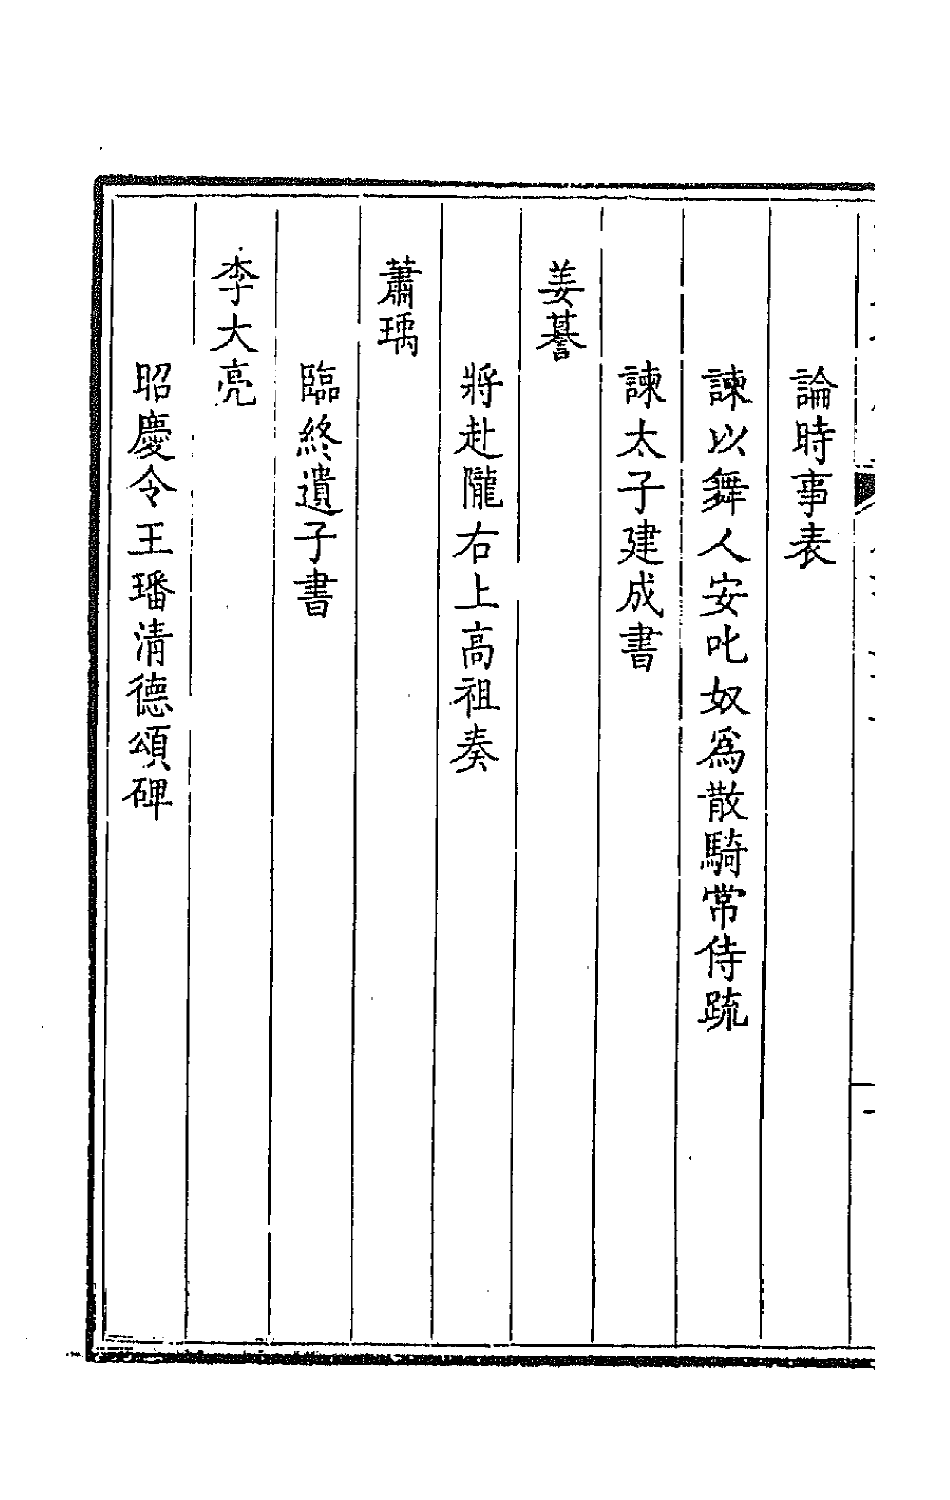 論時事表
諫以舞人安叱奴爲散騎常侍疏
諫太子建成書
姜謩
將赴隴右上高祖奏
蕭瑀
臨終遺子書
李大亮
昭慶令王璠清德頌碑